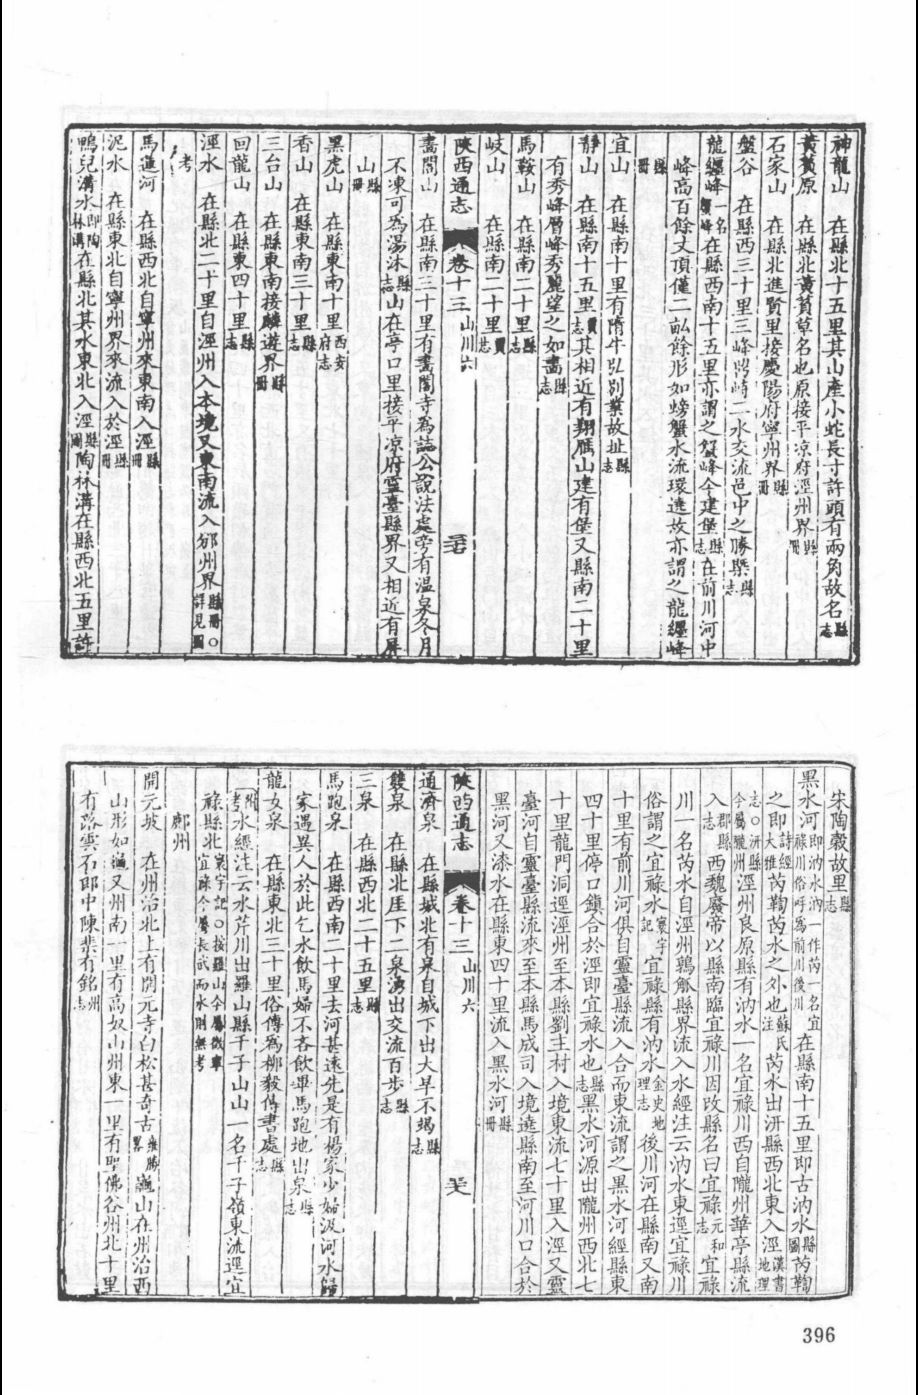 神龍山　在縣北十五里其山產小蛇長寸許頭有兩角故名縣志
黃蕡原　在縣北黃蕡草名也原接平涼府涇州界縣冊
石家山　在縣北進賢里接慶陽府寧州界縣冊
盤谷　在縣西三十里三峰鼎峙二水交流邑中之勝槩縣志
龍纒峰一名蟹峰在縣西南十五里亦謂之蟹峰今建堡縣志在前川河中
峰高百餘丈頂僅二畝餘形如螃蟹水流環遶故亦謂之龍纒峰
縣冊
宜山　在縣南十里有隋牛弘別業故址縣志
靜山　在縣南十五里賈志其相近有翔鴈山建有堡又縣南二十里
有秀峰層峰秀麗望之如畵縣志
馬鞍山　在縣南二十里縣志
岐山　在縣南二十里賈志
陝西通志　卷十三　山川六
畵閣山　在縣南三十里有畵閣寺爲誌公說法處旁有温泉冬月
不凍可爲湯沐縣志山在亭口里接平凉府靈臺縣界又相近有屏
山縣冊
黑虎山　在縣東南十里西安府志
香山　在縣東南三十里縣志
三台山　在縣東南接麟遊界縣冊
回龍山　在縣東四十里縣志
涇水　在縣北二十里自涇州入本境又東南流入邠州界縣冊○詳見圖
考
馬蓮河　在縣西北自寧州來東南入涇縣冊
泥水　在縣東北自寧州界來流入於涇縣冊
鴨兒溝水即陶林溝在縣北其水東北入涇縣圖陶林溝在縣西北五里許
宋陶穀故里縣志
黑水河即汭水汭一作芮一名宜祿川俗呼爲前川後川在縣南十五里即古汭水縣圖芮鞫
之即詩經大雅芮鞫芮水之外也蘇氏注芮水出汧縣西北東入涇漢書地理
志○汧縣今屬隴州涇州良原縣有汭水一名宜祿川西自隴州華亭縣流
入郡縣志西魏廢帝以縣南臨宜祿川因改縣名曰宜祿元和志宜祿
川一名芮水自涇州鶉觚縣界流入水經注云汭水東逕宜祿川
俗謂之宜祿水寰宇記宜祿縣有汭水金史地理志後川河在縣南又南
十里有前川河俱自靈臺縣流入合而東流謂之黑水河經縣東
四十里停口鎮合於涇即宜祿水也縣志黑水河源出隴州西北七
十里龍門洞逕涇州至本縣劉主村入境東流七十里入涇又靈
臺河自靈臺縣流來至本縣馬成司入境遶縣南至河川口合於
黑河又漆水在縣東四十里流入黑水河縣冊
陝西通志　卷十三　山川六
通濟泉　在縣城北有泉自城下出大旱不竭縣志
雙泉　在縣北厓下二泉湧出交流百步縣志
三泉　在縣西北二十五里縣志
馬跑泉　在縣西南二十里去河甚遠先是有楊家少婦汲河水歸
家遇異人於此乞水飲馬婦不吝飲畢馬跑地出泉縣志
龍女泉　在縣東北三十里俗傳爲柳毅傳書處縣志
附考水經注云水芹川出羅山縣千子山山一名千子嶺東流逕宜
祿縣北寰宇記○按羅山今屬徽寧宜祿今屬長武而水則無考
鄜州
開元坡　在州治北上有開元寺白松甚奇古雍勝畧龜山在州治西
山形如龜又州南一里有高奴山州東一里有聖佛谷州北十里
有落雲石郎中陳棐有銘州志
396